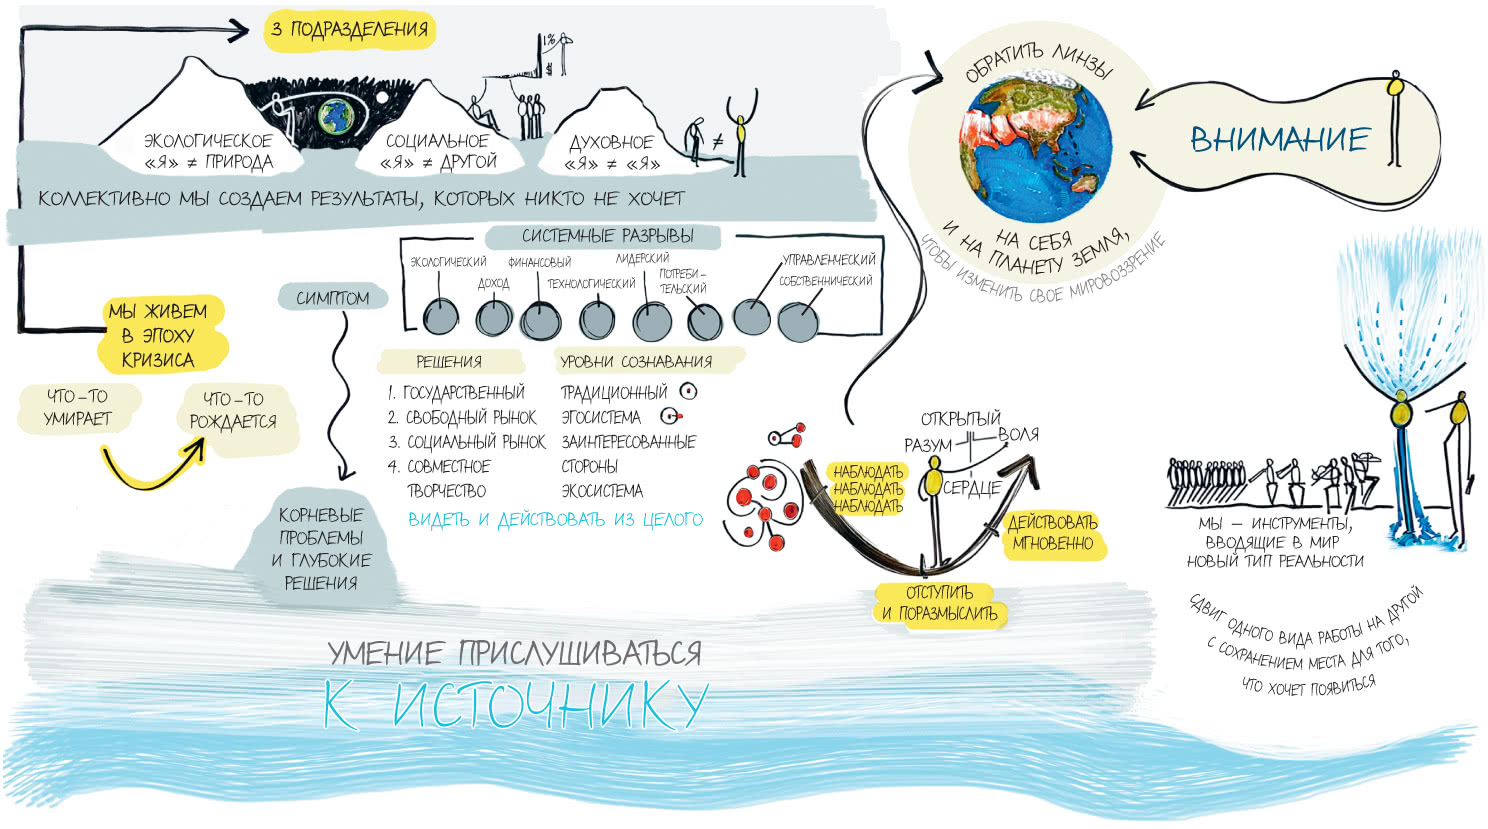 3 ПОДРАЗДЕЛЕНИЯ
1%
$
ЭКОЛОГИЧЕСКОЕ
«Я» ≠ ПРИРОДА
СОЦИАЛЬНОЕ
«Я» ≠ ДРУГОЙ
ДУХОВНОЕ
«Я» ≠ «Я»
≠
КОЛЛЕКТИВНО МЫ СОЗДАЕМ РЕЗУЛЬТАТЫ, КОТОРЫХ НИКТО НЕ ХОЧЕТ
ОБРАТИТЬ ЛИНЗЫ
НА СЕБЯ
И НА ПЛАНЕТУ ЗЕМЛЯ,
ЧТОБЫ ИЗМЕНИТЬ СВОЕ МИРОВОЗЗРЕНИЕ
ВНИМАНИЕ
СИСТЕМНЫЕ РАЗРЫВЫ
ЭКОЛОГИЧЕСКИЙ
ДОХОД
ФИНАНСОВЫЙ
ТЕХНОЛОГИЧЕСКИЙ
ЛИДЕРСКИЙ
ПОТРЕБИ-
ТЕЛЬСКИЙ
УПРАВЛЕНЧЕСКИЙ
СОБСТВЕННИЧЕСКИЙ
МЫ ЖИВЕМ
В ЭПОХУ
КРИЗИСА
ЧТО-ТО
УМИРАЕТ
ЧТО-ТО
РОЖДАЕТСЯ
СИМПТОМ
КОРНЕВЫЕ
ПРОБЛЕМЫ
И ГЛУБОКИЕ
РЕШЕНИЯ
РЕШЕНИЯ
1. ГОСУДАРСТВЕННЫЙ
2. СВОБОДНЫЙ РЫНОК
3. СОЦИАЛЬНЫЙ РЫНОК
4. СОВМЕСТНОЕ
ТВОРЧЕСТВО
УРОВНИ СОЗНАВАНИЯ
ТРАДИЦИОННЫЙ
ЭГОСИСТЕМА
ЗАИНТЕРЕСОВАННЫЕ
СТОРОНЫ
ЭКОСИСТЕМА
ВИДЕТЬ И ДЕЙСТВОВАТЬ ИЗ ЦЕЛОГО
ОТКРЫТЫЙ
РАЗУМ
ВОЛЯ
СЕРДЦЕ
НАБЛЮДАТЬ
НАБЛЮДАТЬ
НАБЛЮДАТЬ
ДЕЙСТВОВАТЬ
МГНОВЕННО
ОТСТУПИТЬ
И ПОРАЗМЫСЛИТЬ
МЫ – ИНСТРУМЕНТЫ,
ВВОДЯЩИЕ В МИР
НОВЫЙ ТИП РЕАЛЬНОСТИ
СДВИГ ОДНОГО ВИДА РАБОТЫ НА ДРУГОЙ
С СОХРАНЕНИЕМ МЕСТА ДЛЯ ТОГО,
ЧТО ХОЧЕТ ПОЯВИТЬСЯ
УМЕНИЕ ПРИСЛУШИВАТЬСЯ
К ИСТОЧНИКУ